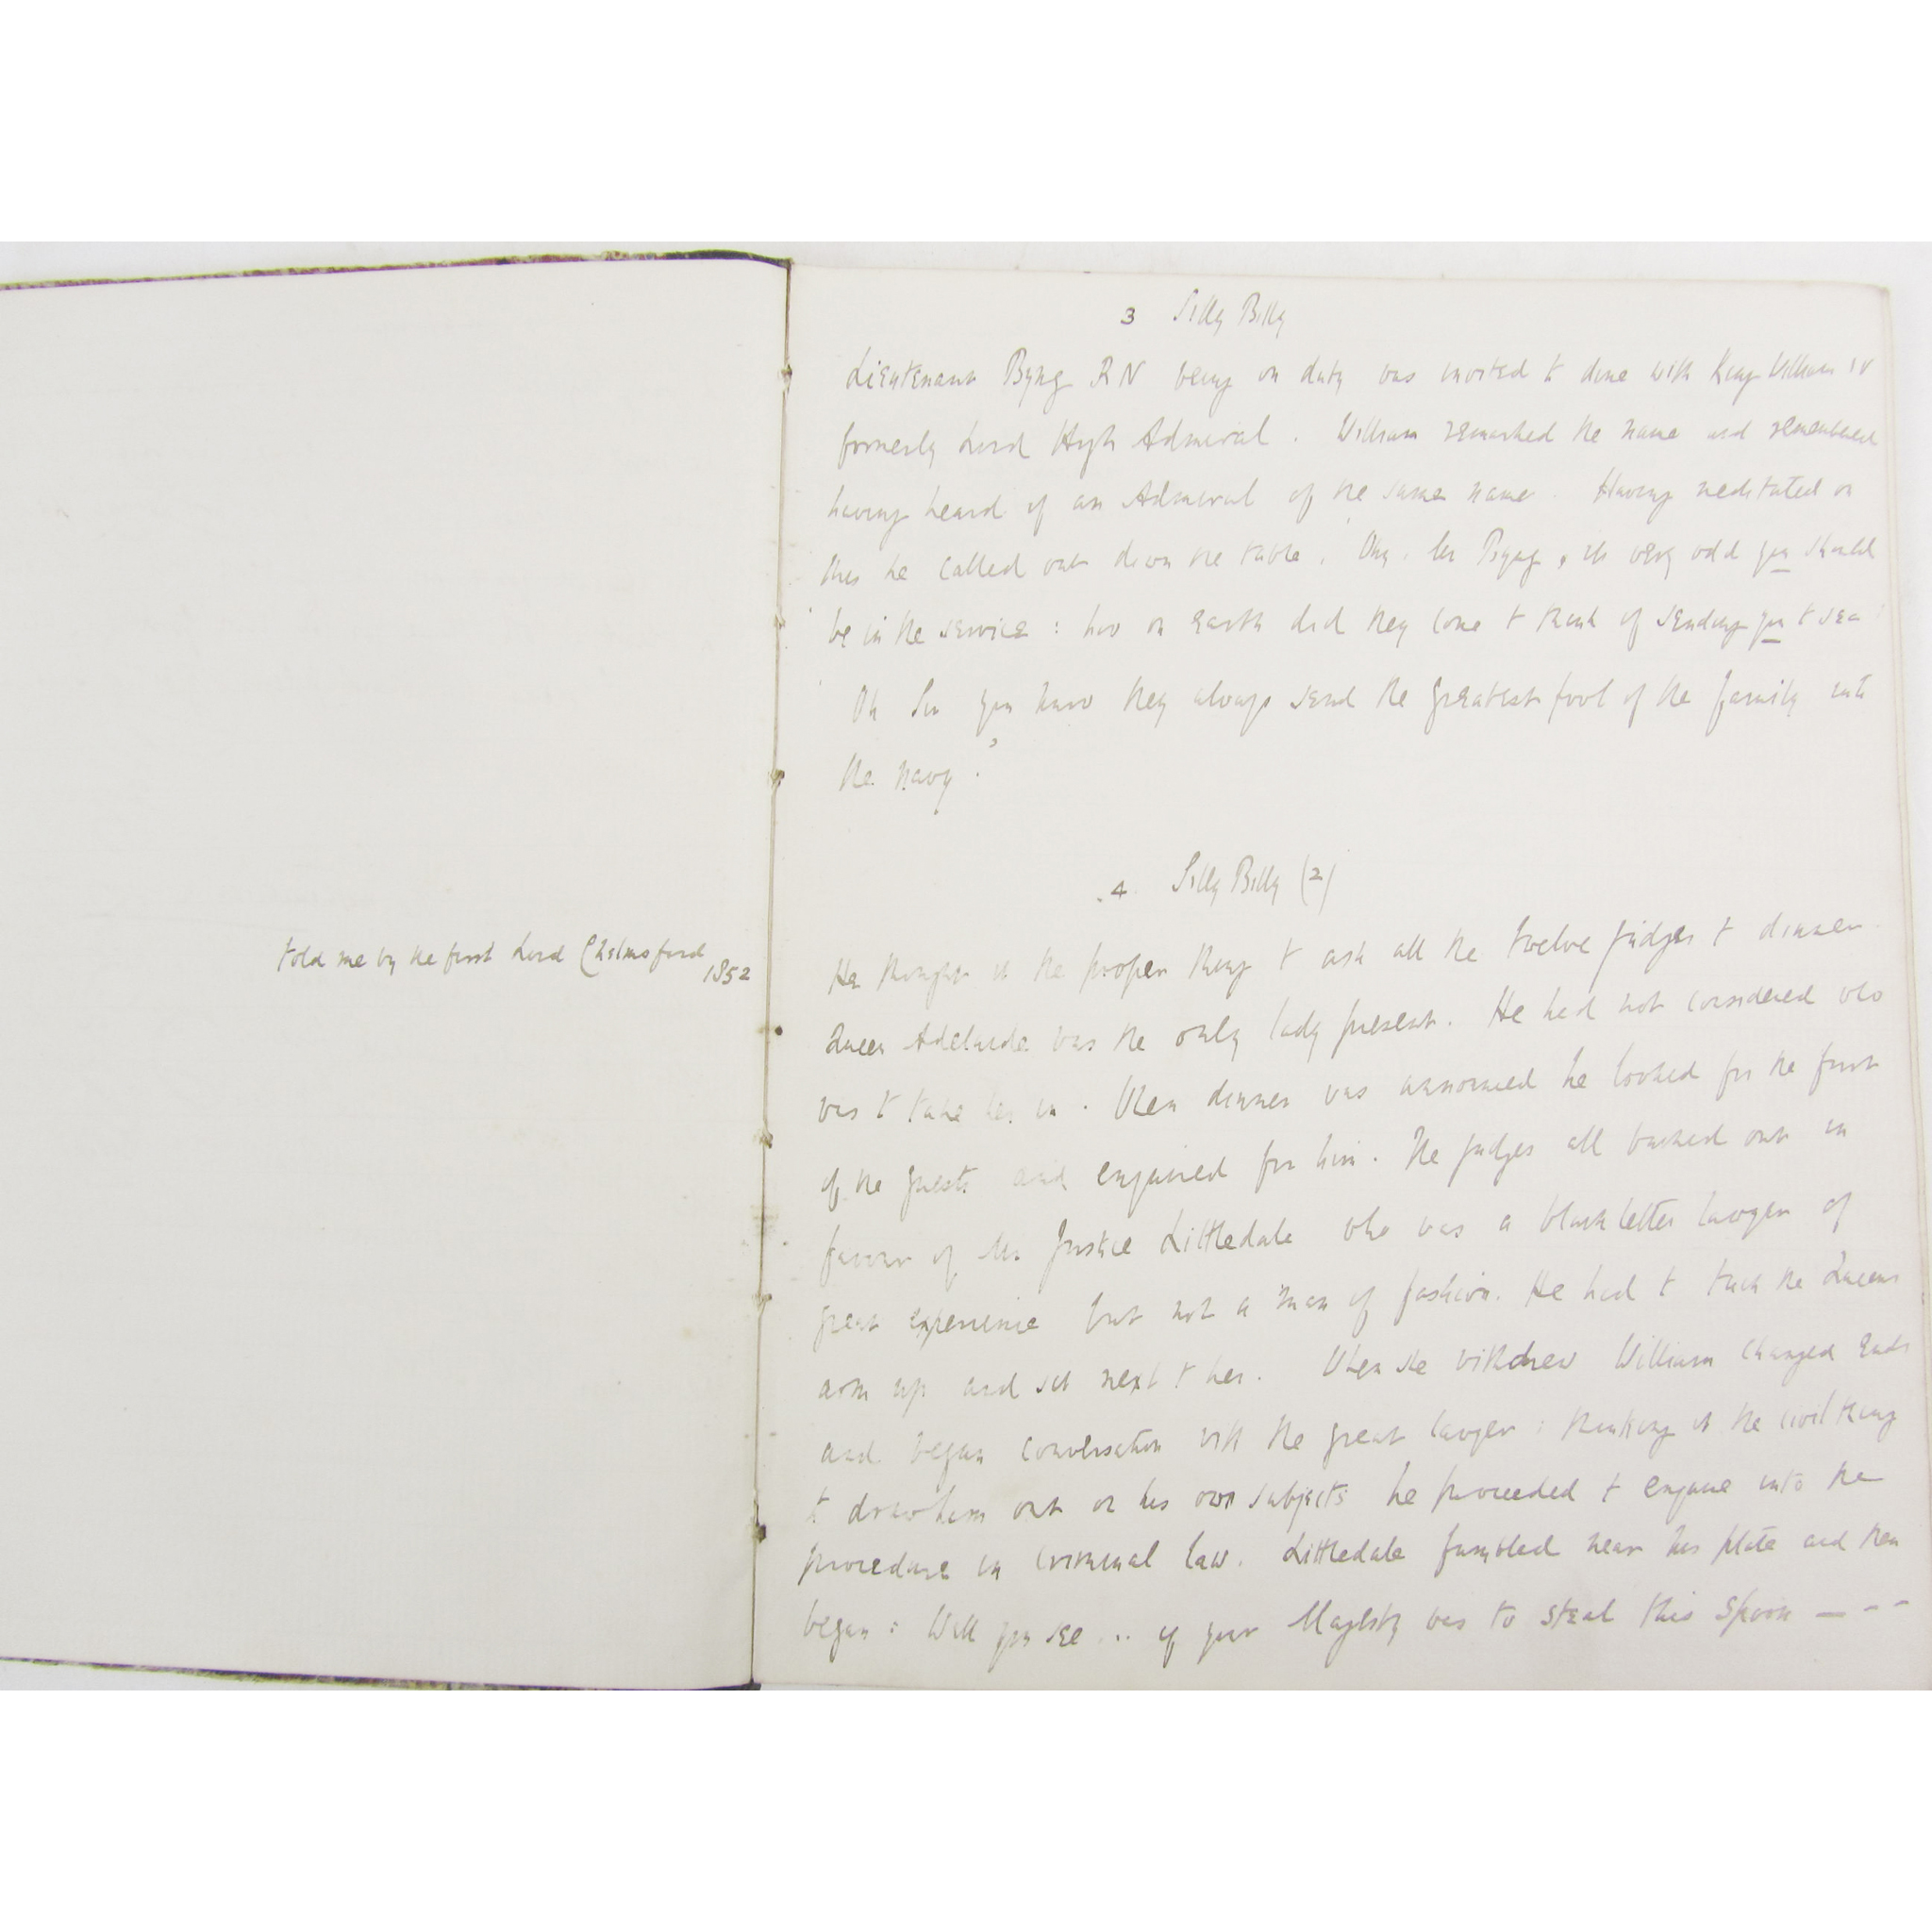 told me by the first Lord Chelmsford
1852
3 Silly Billy
Lieutenant Byng RN being on duty was invited to dine with King William IV
formerly Lord High Admiral. William remarked the name and remembered
having heard of an Admiral of the same name. Having meditated on
this he called out down the table. 'Why, Mr Byng, its very odd you should
be in the service: how on earth did they come to think of sending you to sea'
'Oh Sir you know they always send the greatest fool of the family into
the navy.'
4 Silly Billy (2)
He thought it the proper thing to ask all the twelve judges to dinner.
Queen Adelaide was the only lady present. He had not considered who
was to take her in. When dinner was announced he looked for the first
of the guests and enquired for him. The judges all backed out in
favour of Mr. Justice Littledale who was a blackletter lawyer of
great experience but not a man of fashion. He had to tuck the Queens
arm up and sit next to her. When she withdrew William changed ends
and began conversation with the great lawyer: thinking it the civil thing
to draw him out on his own subjects he proceeded to enquire into the
procedure in criminal law. Littledale fumbled near his plate and then
began: Well you see ... if your Majesty was to steal this spoon — - -